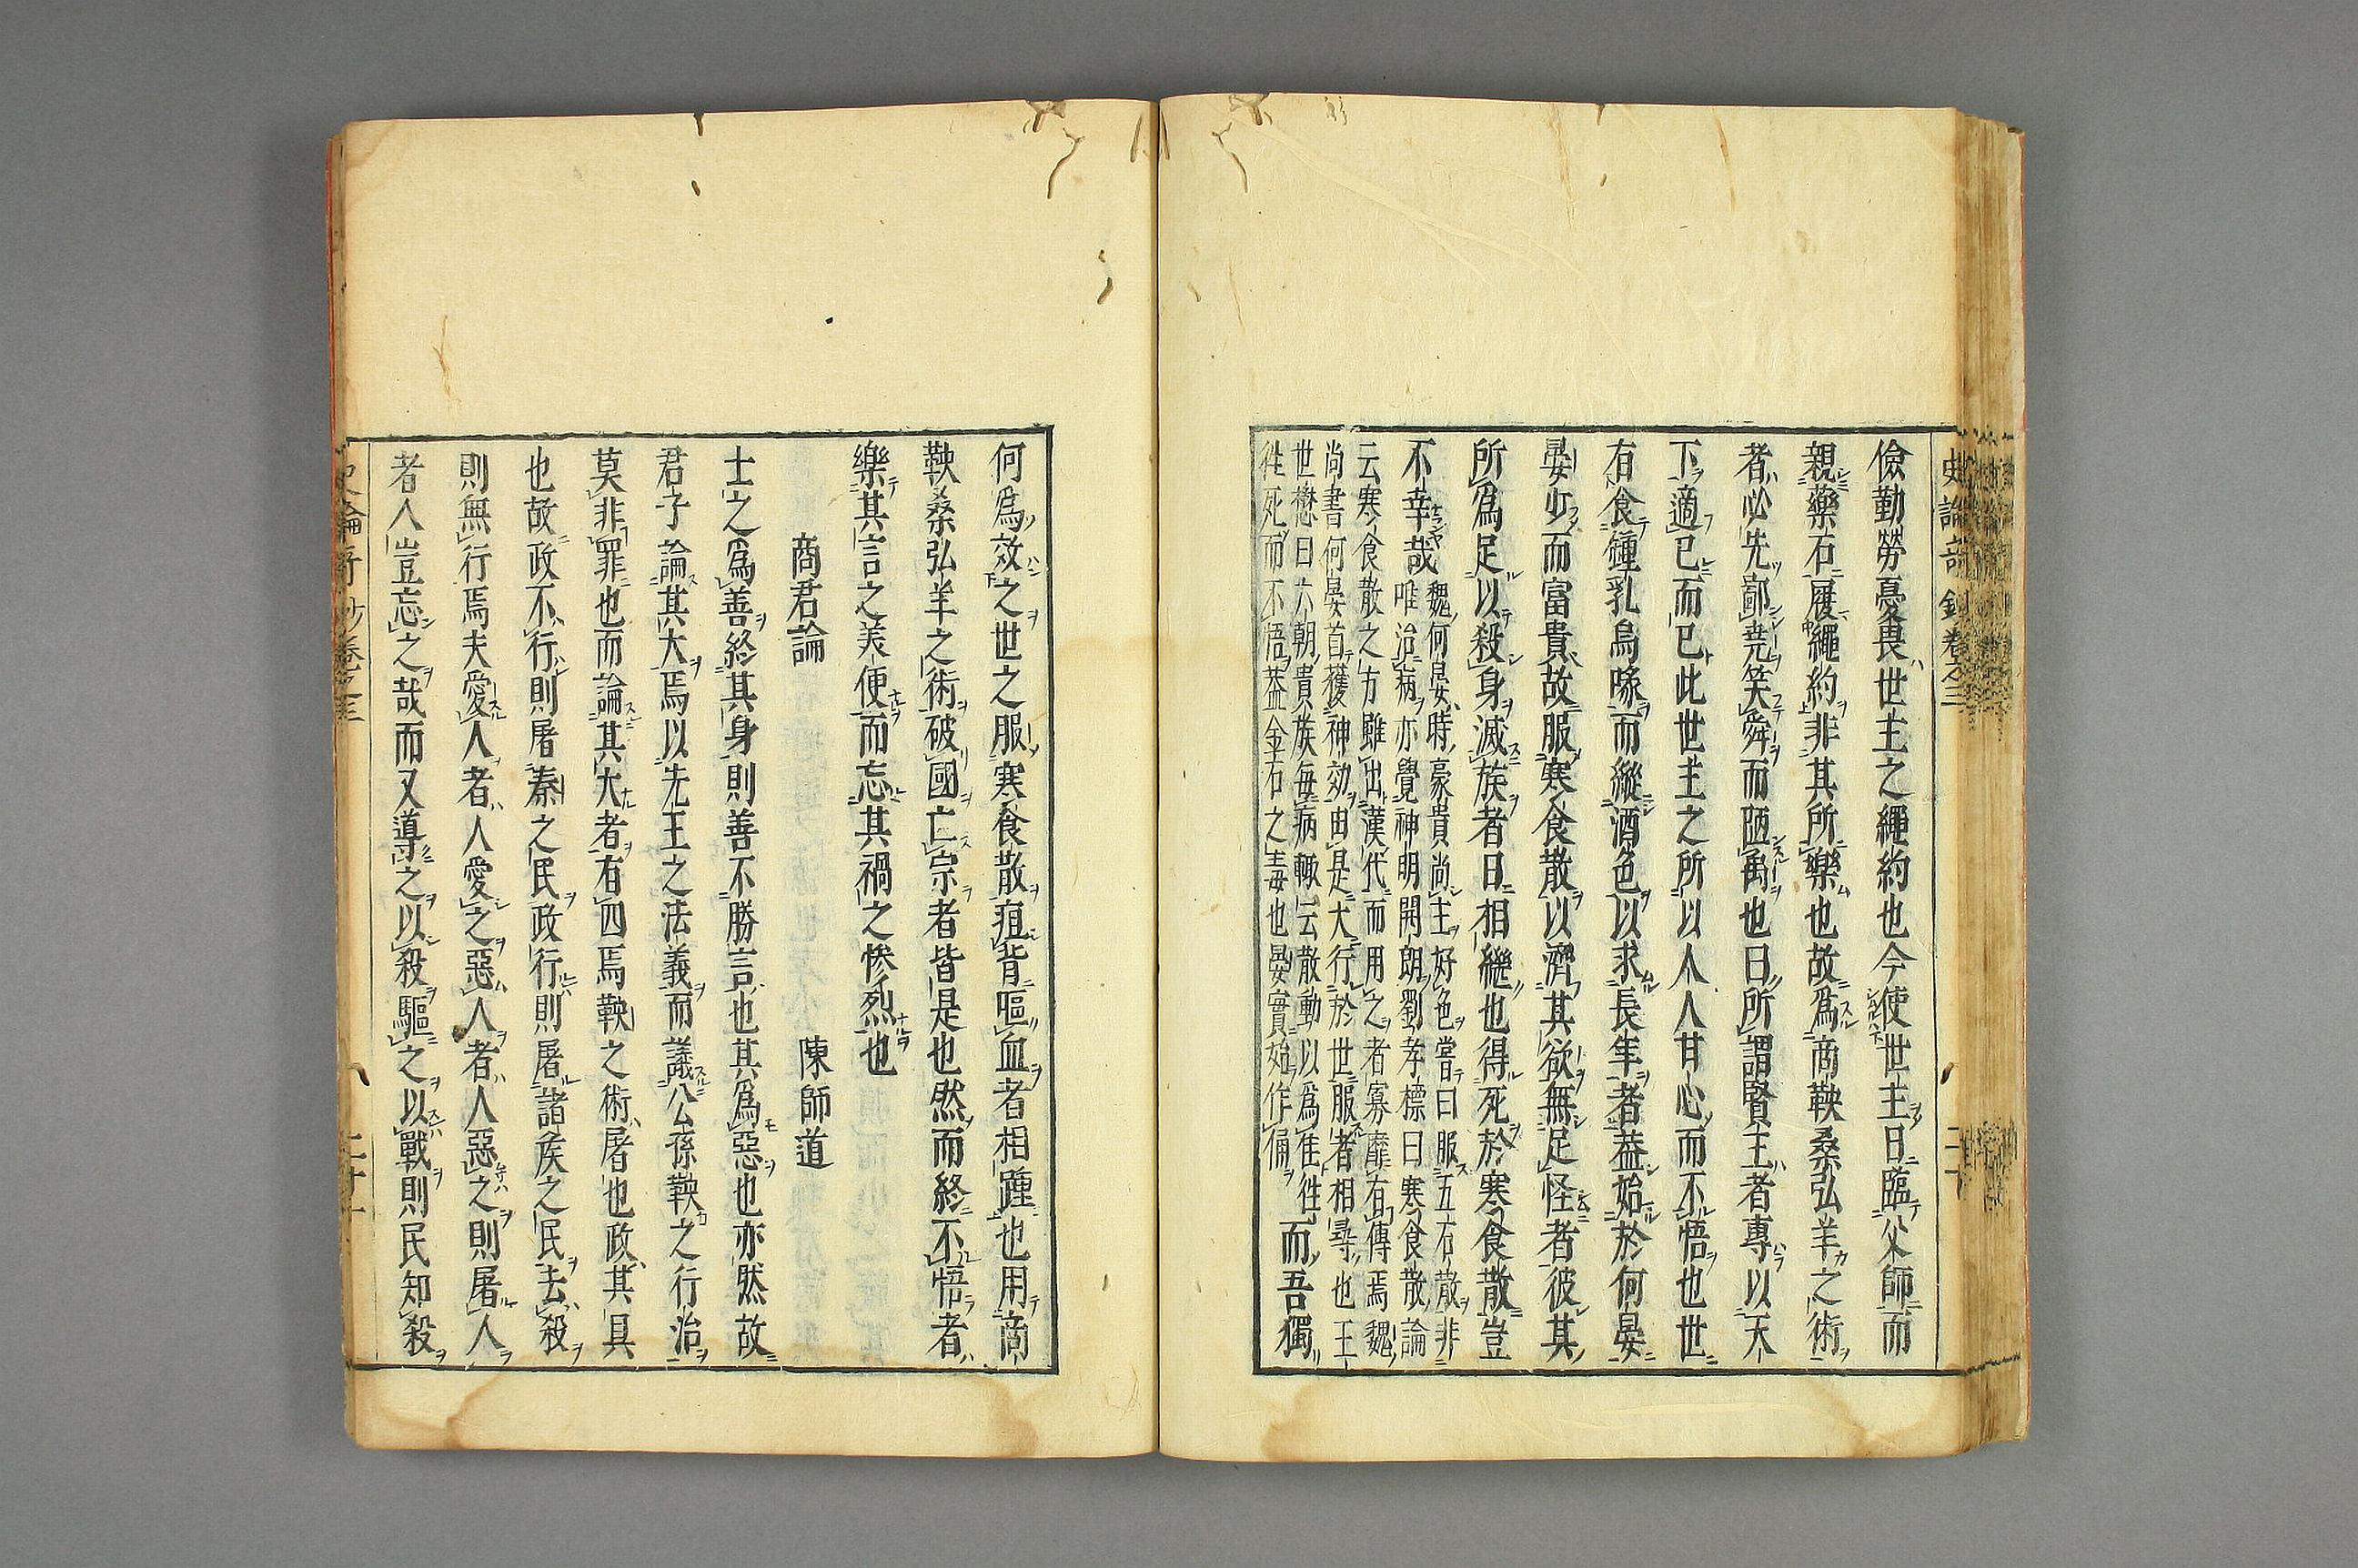 史論奇鈔卷之三 二十
儉勤勞憂畏世主之繩約也今使世主日臨父師而
親藥石履繩約非其所樂也故爲商鞅桑弘羊之術
者必先鄙堯笑舜而陋禹也曰所謂賢王者專以天
下適已而已此世主之所以人人甘心而不悟也世
有食鍾乳烏喙而縱酒色以求長年者葢始於何晏
晏少而富貴故服寒食散以濟其欲無足怪者彼其
所爲足以殺身滅族者日相繼也得死於寒食散豈
不幸哉
魏何晏時豪貴尚主好色嘗曰服五石散非
唯治病亦覺神明開朗劉孝標曰寒食散論
云寒食散之方雖出漢代而用之者寡靡有傳焉魏
尚書何晏首獲神効由是大行於世服者相尋也王
世懋曰六朝貴族每病輙云散動以爲佳徃
徃死而不悟葢金石之毒也晏實始作俑
而吾獨
何爲效之世之服寒食散疽背嘔血者相踵也用商
鞅桑弘羊之術破國亡宗者皆是也然而終不悟者
樂其言之美便而忘其禍之慘烈也
商君論 陳師道
士之爲善終其身則善不勝言也其爲惡也亦然故
君子論其大焉以先王之法義而議公孫鞅之行治
莫非罪也而論其大者有四焉鞅之術屠也政其具
也故政不行則屠秦之民政行則屠諸侯之民去殺
則無行焉夫愛人者人愛之惡人者人惡之則屠人
者人豈忘之哉而又導之以殺驅之以戰則民知殺
史論奇鈔卷之三 二十一